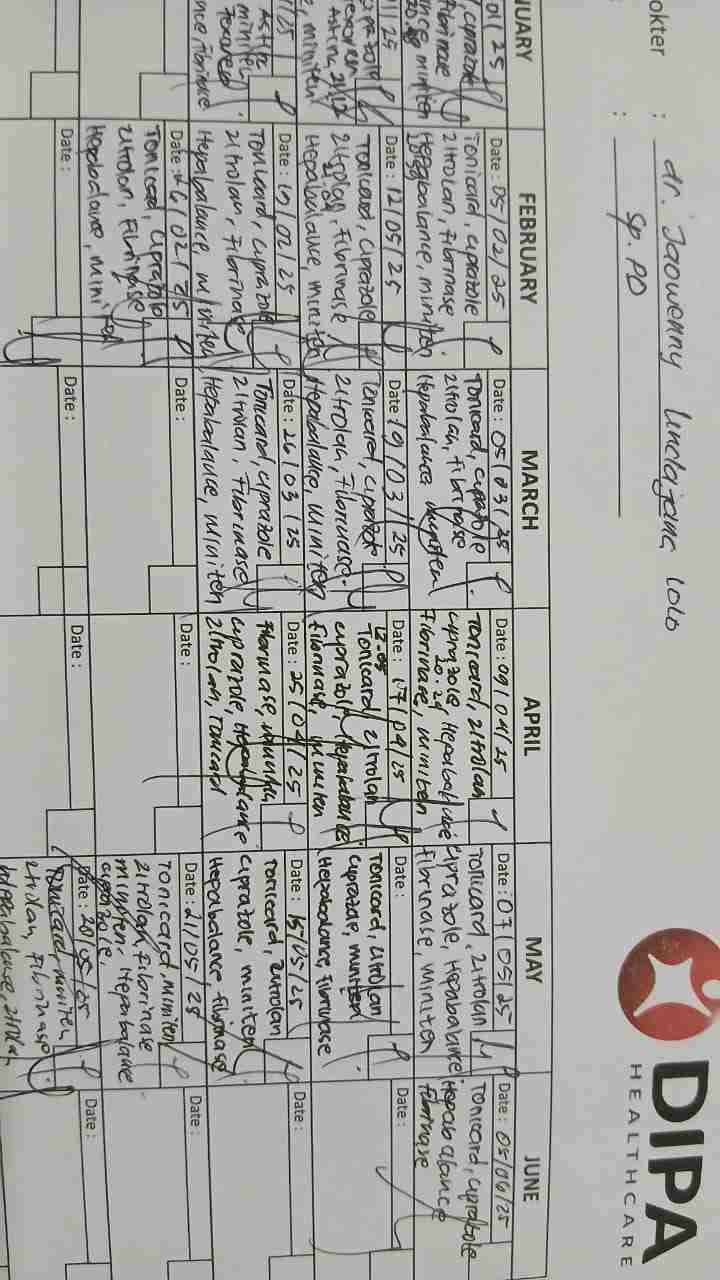 okter : dr. Jaowenny Lindajana Lolo
: Sp. PD
DIPA
HEALTHCARE
NUARY
FEBRUARY
MARCH
APRIL
MAY
JUNE
01/25
ciprazole
fibrinase
miniten
Date : 05/02/25
Tonicard, ciprazole
Zitrolan, Fibrinase
Hepabalance, miniten
Date : 05/03/25
Tonicard, ciprazole
Zitrolan, Fibrinase
Hepabalance miniten
Date : 09/04/25
Tonicard, Zitrolan
ciprazole, Hepabalance
Fibrinase, miniten
Date : 07/05/25
Tonicard, Zitrolan
Ciprazole, Hepabalance
fibrinase, miniten
Date : 05/06/25
Tonicard, ciprazole
Hepabalance
fibrinase
Date : 12/05/25
Tonicard, ciprazole
Zitrolan, Fibrinase
Hepabalance, miniten
Date : 19/03/25
Tonicard, ciprazole
Zitrolan, Fibrinase
Hepabalance, miniten
Date : 17/04/25
Tonicard Zitrolan
ciprazole, Hepabalance
fibrinase, miniten
Date :
Tonicard, Zitrolan
ciprazole, miniten
Hepabalance, fibrinase
Date :
Date : 19/02/25
Tonicard, ciprazole
Zitrolan, Fibrinase
Hepabalance, miniten
Date : 26/03/25
Tonicard, ciprazole
Zitrolan, Fibrinase
Hepabalance, miniten
Date : 25/04/25
fibrinase, miniten
ciprazole, Hepabalance
Zitrolan, Tonicard
Date : 15/05/25
Tonicard, Zitrolan
Ciprazole, miniten
Hepabalance, fibrinase
Date :
Date : 26/02/25
Tonicard, ciprazole
Zitrolan, Fibrinase
Hepabalance, miniten
Date :
Date :
Date : 21/05/25
Tonicard, miniten
Zitrolan, fibrinase
miniten, Hepabalance
ciprazole.
Date :
Date :
Date :
Date :
Date : 28/05/25
Tonicard, miniten,
Zitrolan, fibrinase
Hepabalance, Zitrolan
Date :